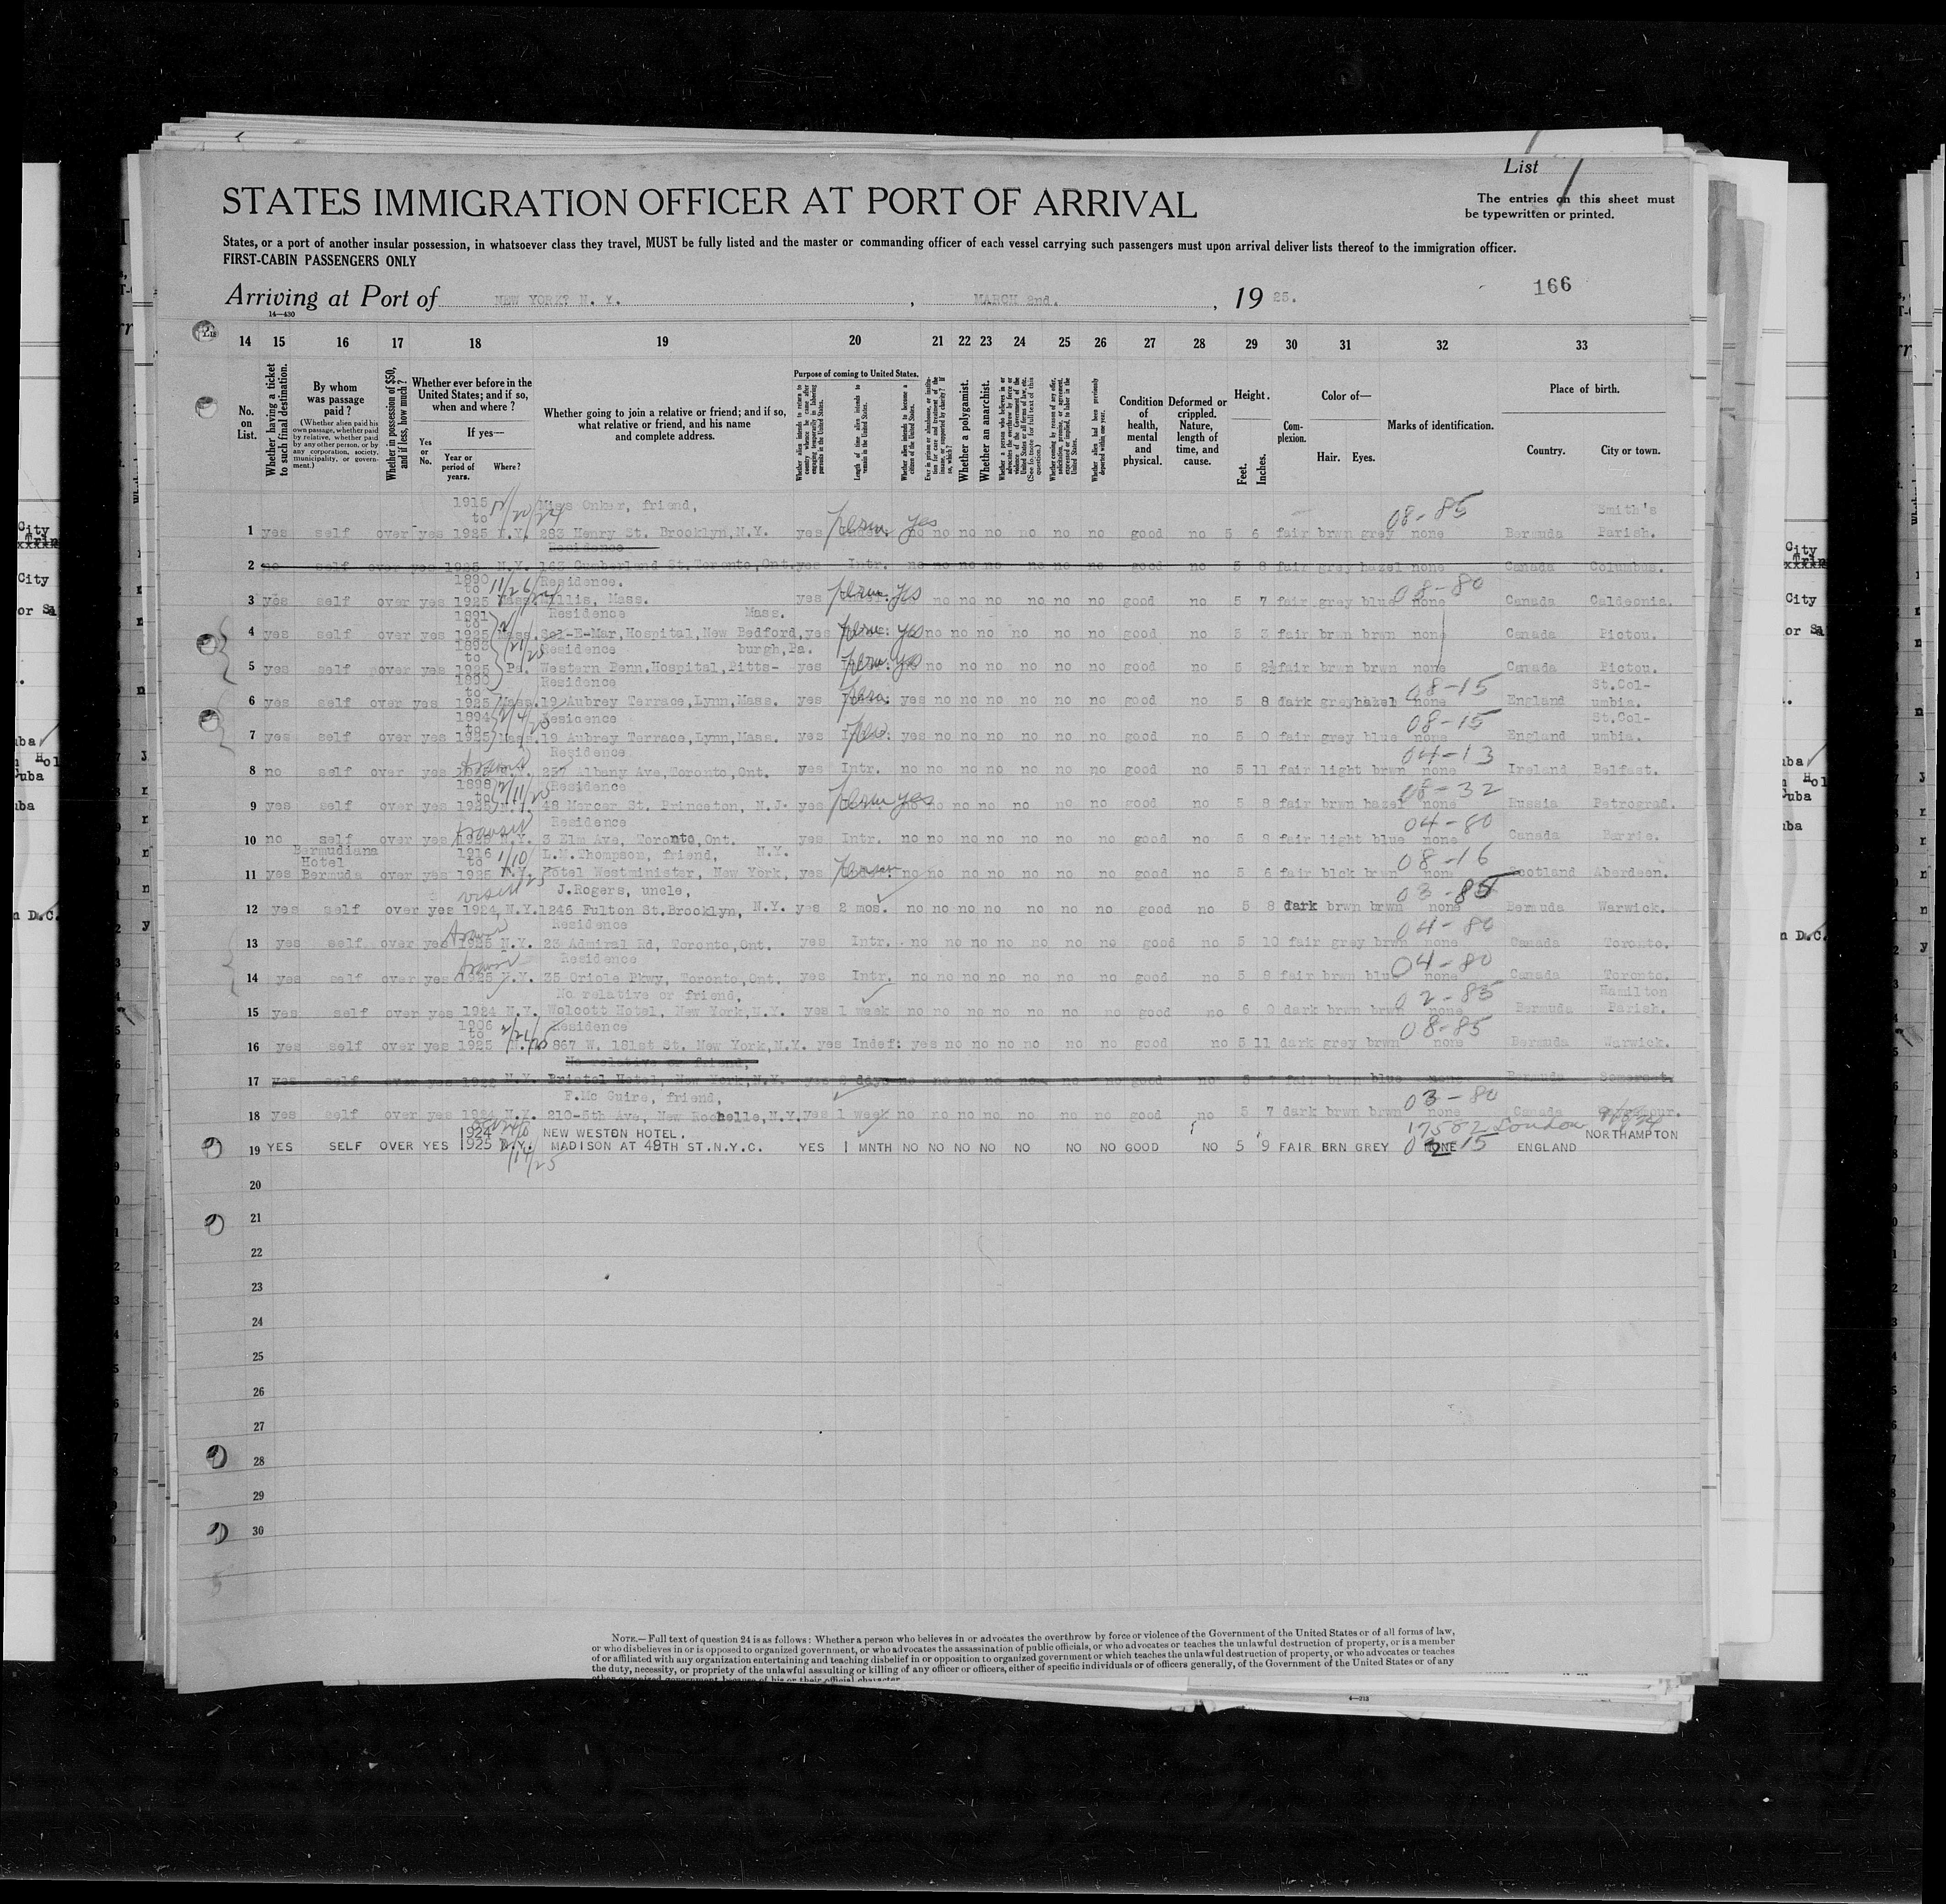 List 1
STATES IMMIGRATION OFFICER AT PORT OF ARRIVAL
The entries on this sheet must
be typewritten or printed.
States, or a port of another insular possession, in whatsoever class they travel, MUST be fully listed and the master or commanding officer of each vessel carrying such passengers must upon arrival deliver lists thereof to the immigration officer.
FIRST-CABIN PASSENGERS ONLY
Arriving at Port of NEW YORK? N. Y. , MARCH 2nd. , 19 25.
166
14—430
14 15 16 17 18 19 20 21 22 23 24 25 26 27 28 29 30 31 32 33
No. on List.
Whether having a ticket to such final destination.
By whom was passage paid?
(Whether alien paid his own passage, whether paid by relative, whether paid by any other person, or by any corporation, society, municipality, or government.)
Whether in possession of $50, and if less, how much?
Whether ever before in the United States; and if so, when and where?
If yes—
Yes or No.
Year or period of years.
Where?
Whether going to join a relative or friend; and if so, what relative or friend, and his name and complete address.
Purpose of coming to United States.
Length of time alien intends to remain in the United States.
Whether alien intends to become a citizen of the United States.
Whether a polygamist.
Whether an anarchist.
Condition of health, mental and physical.
Deformed or crippled. Nature, length of time, and cause.
Height.
Feet. Inches.
Complexion.
Color of—
Hair. Eyes.
Marks of identification.
Place of birth.
Country. City or town.
1915 to Miss Onker, friend, perm yes 08-85 Smith's
1 yes self over yes 1925 N.Y. 283 Henry St. Brooklyn,N.Y. yes no no no no no no no good no 5 6 fair brwn grey none Bermuda Parish.
Residence
2 no self over yes 1925 N.Y. 163 Cumberland St,Toronto,Ont. yes Intr. no no no no no no no good no 5 8 fair grey hazel none Canada Columbus.
1890 to 11/26/24 Residence. perm yes 08-80
3 yes self over yes 1925 Mass. Millis, Mass. yes no no no no no no good no 5 7 fair grey blue none Canada Caldeonia.
1891 to Residence Mass.
4 yes self over yes 1925 Mass. Sol-E-Mar,Hospital,New Bedford, yes perm yes no no no no no no good no 5 3 fair brwn brwn none Canada Pictou.
1893 to Residence burgh,Pa.
5 yes self over yes 1925 Pa. Western Penn.Hospital,Pitts- yes perm yes no no no no no no good no 5 2½ fair brwn brwn none Canada Pictou.
1890 to Residence 08-15 St.Col-
6 yes self over yes 1925 Mass. 19 Aubrey Terrace,Lynn,Mass. yes yes no no no no no no good no 5 8 dark grey hazel none England umbia.
1894 to 2/4/25 Residence 08-15 St.Col-
7 yes self over yes 1925 Mass. 19 Aubrey Terrace,Lynn,Mass. yes yes no no no no no no good no 5 0 fair grey blue none England umbia.
transit Residence 04-13
8 no self over yes N.Y. 257 Albany Ave,Toronto,Ont. yes Intr. no no no no no no no good no 5 11 fair light brwn none Ireland Belfast.
1898 to 2/11/25 Residence 08-32
9 yes self over yes 1925 N.J. 48 Mercer St. Princeton, N.J. yes perm yes no no no no no no good no 5 8 fair brwn hazel none Russia Petrograd.
transit Residence 04-80
10 no self over yes 1925 N.Y. 3 Elm Ave, Toronto,Ont. yes Intr. no no no no no no no good no 5 8 fair light blue none Canada Barrie.
Bermudiana Hotel 1916 to 1/10/25 L.M.Thompson, friend, N.Y. 08-16
11 yes Bermuda over yes 1925 N.Y. Hotel Westminister, New York, yes no no no no no no no good no 5 6 fair blck brwn none Scotland Aberdeen.
visit J.Rogers, uncle, 03-85
12 yes self over yes 1924, N.Y. 1246 Fulton St.Brooklyn, N.Y. yes 2 mos. no no no no no no no good no 5 8 dark brwn brwn none Bermuda Warwick.
transit Residence 04-80
13 yes self over yes 1925 N.Y. 23 Admiral Rd, Toronto,Ont. yes Intr. no no no no no no no good no 5 10 fair grey brwn none Canada Toronto.
transit Residence 04-80
14 yes self over yes 1925 N.Y. 35 Oriole Pkwy, Toronto,Ont. yes Intr. no no no no no no no good no 5 8 fair brwn blue none Canada Toronto.
No relative or friend, 02-85 Hamilton
15 yes self over yes 1924 N.Y. Wolcott Hotel, New York,N.Y. yes 1 week no no no no no no no good no 6 0 dark brwn brwn none Bermuda Parish.
1906 to Residence 08-85
16 yes self over yes 1925 N.Y. 867 W. 181st St. New York,N.Y. yes Indef: yes no no no no no no good no 5 11 dark grey brwn none Bermuda Warwick.
No relative or friend,
17 yes self over yes N.Y. Bristol Hotel, New York,N.Y. yes 8 days no no no no no no no good no 5 7 fair brwn blue none Bermuda Somerset.
F.Mc Guire, friend, 03-80
18 yes self over yes 1924 N.Y. 210-5th Ave, New Rochelle,N.Y. yes 1 week no no no no no no no good no 5 7 dark brwn brwn none Canada
1924 to NEW WESTON HOTEL. 17582 London NORTHAMPTON
19 YES SELF OVER YES 1925 N.Y. MADISON AT 48TH ST.N.Y.C. YES 1 MNTH NO NO NO NO NO NO NO GOOD NO 5 9 FAIR BRN GREY NONE 02-15 ENGLAND
1/14/25
20
21
22
23
24
25
26
27
28
29
30
NOTE.—Full text of question 24 is as follows: Whether a person who believes in or advocates the overthrow by force or violence of the Government of the United States or of all forms of law,
or who disbelieves in or is opposed to organized government, or who advocates the assassination of public officials, or who advocates or teaches the unlawful destruction of property, or is a member
of or affiliated with any organization entertaining and teaching disbelief in or opposition to organized government or which teaches the unlawful destruction of property, or who advocates or teaches
the duty, necessity, or propriety of the unlawful assaulting or killing of any officer or officers, either of specific individuals or of officers generally, of the Government of the United States or of any
other organized government because of his or their official character.